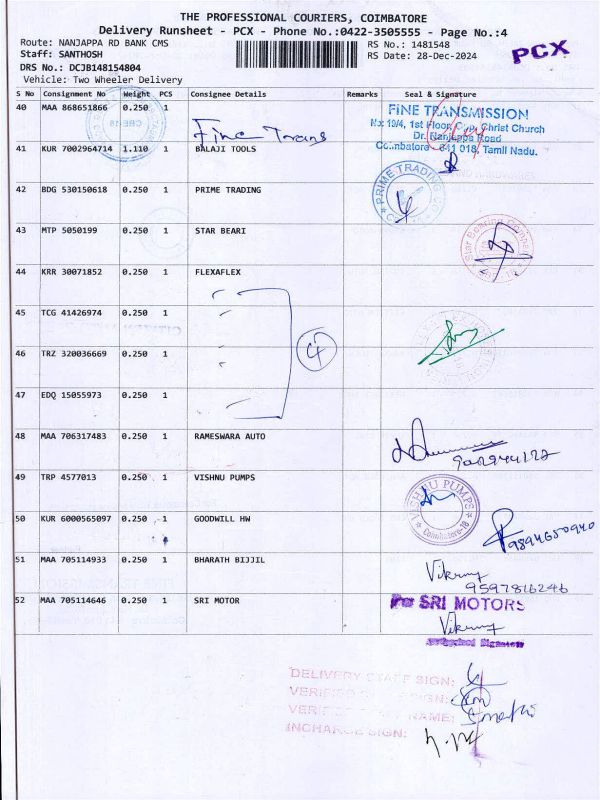 THE PROFESSIONAL COURIERS, COIMBATORE
Delivery Runsheet - PCX - Phone No.:0422-3505555 - Page No.:4
Route: NANJAPPA RD BANK CMS RS No.: 1481548
Staff: SANTHOSH RS Date: 28-Dec-2024
PCX
DRS No.: DCJB148154804
Vehicle: Two Wheeler Delivery
S No Consignment No Weight PCS Consignee Details Remarks Seal & Signature
40 MAA 868651866 0.250 1 Fine Trans
FINE TRANSMISSION
1st Floor, Christ Church
Dr. Nanjappa Road
Coimbatore - 641 018, Tamil Nadu.
41 KUR 7002964714 1.110 1 BALAJI TOOLS
42 BDG 530150618 0.250 1 PRIME TRADING
PRIME TRADING
43 MTP 5050199 0.250 1 STAR BEARI
Star Bearing Company
44 KRR 30071852 0.250 1 FLEXAFLEX
45 TCG 41426974 0.250 1
46 TRZ 320036669 0.250 1
4
47 EDQ 15055973 0.250 1
48 MAA 706317483 0.250 1 RAMESWARA AUTO
49 TRP 4577013 0.250 1 VISHNU PUMPS
VISHNU PUMPS
Coimbatore-18
50 KUR 6000565097 0.250 1 GOODWILL HW
9894650940
51 MAA 705114933 0.250 1 BHARATH BIJJIL
Vikram
9597816246
52 MAA 705114646 0.250 1 SRI MOTOR
For SRI MOTORS
Vikram
Authorised Signatory
DELIVERY STAFF SIGN:
VERIFIED SIGN:
NAME:
INCHARGE SIGN: